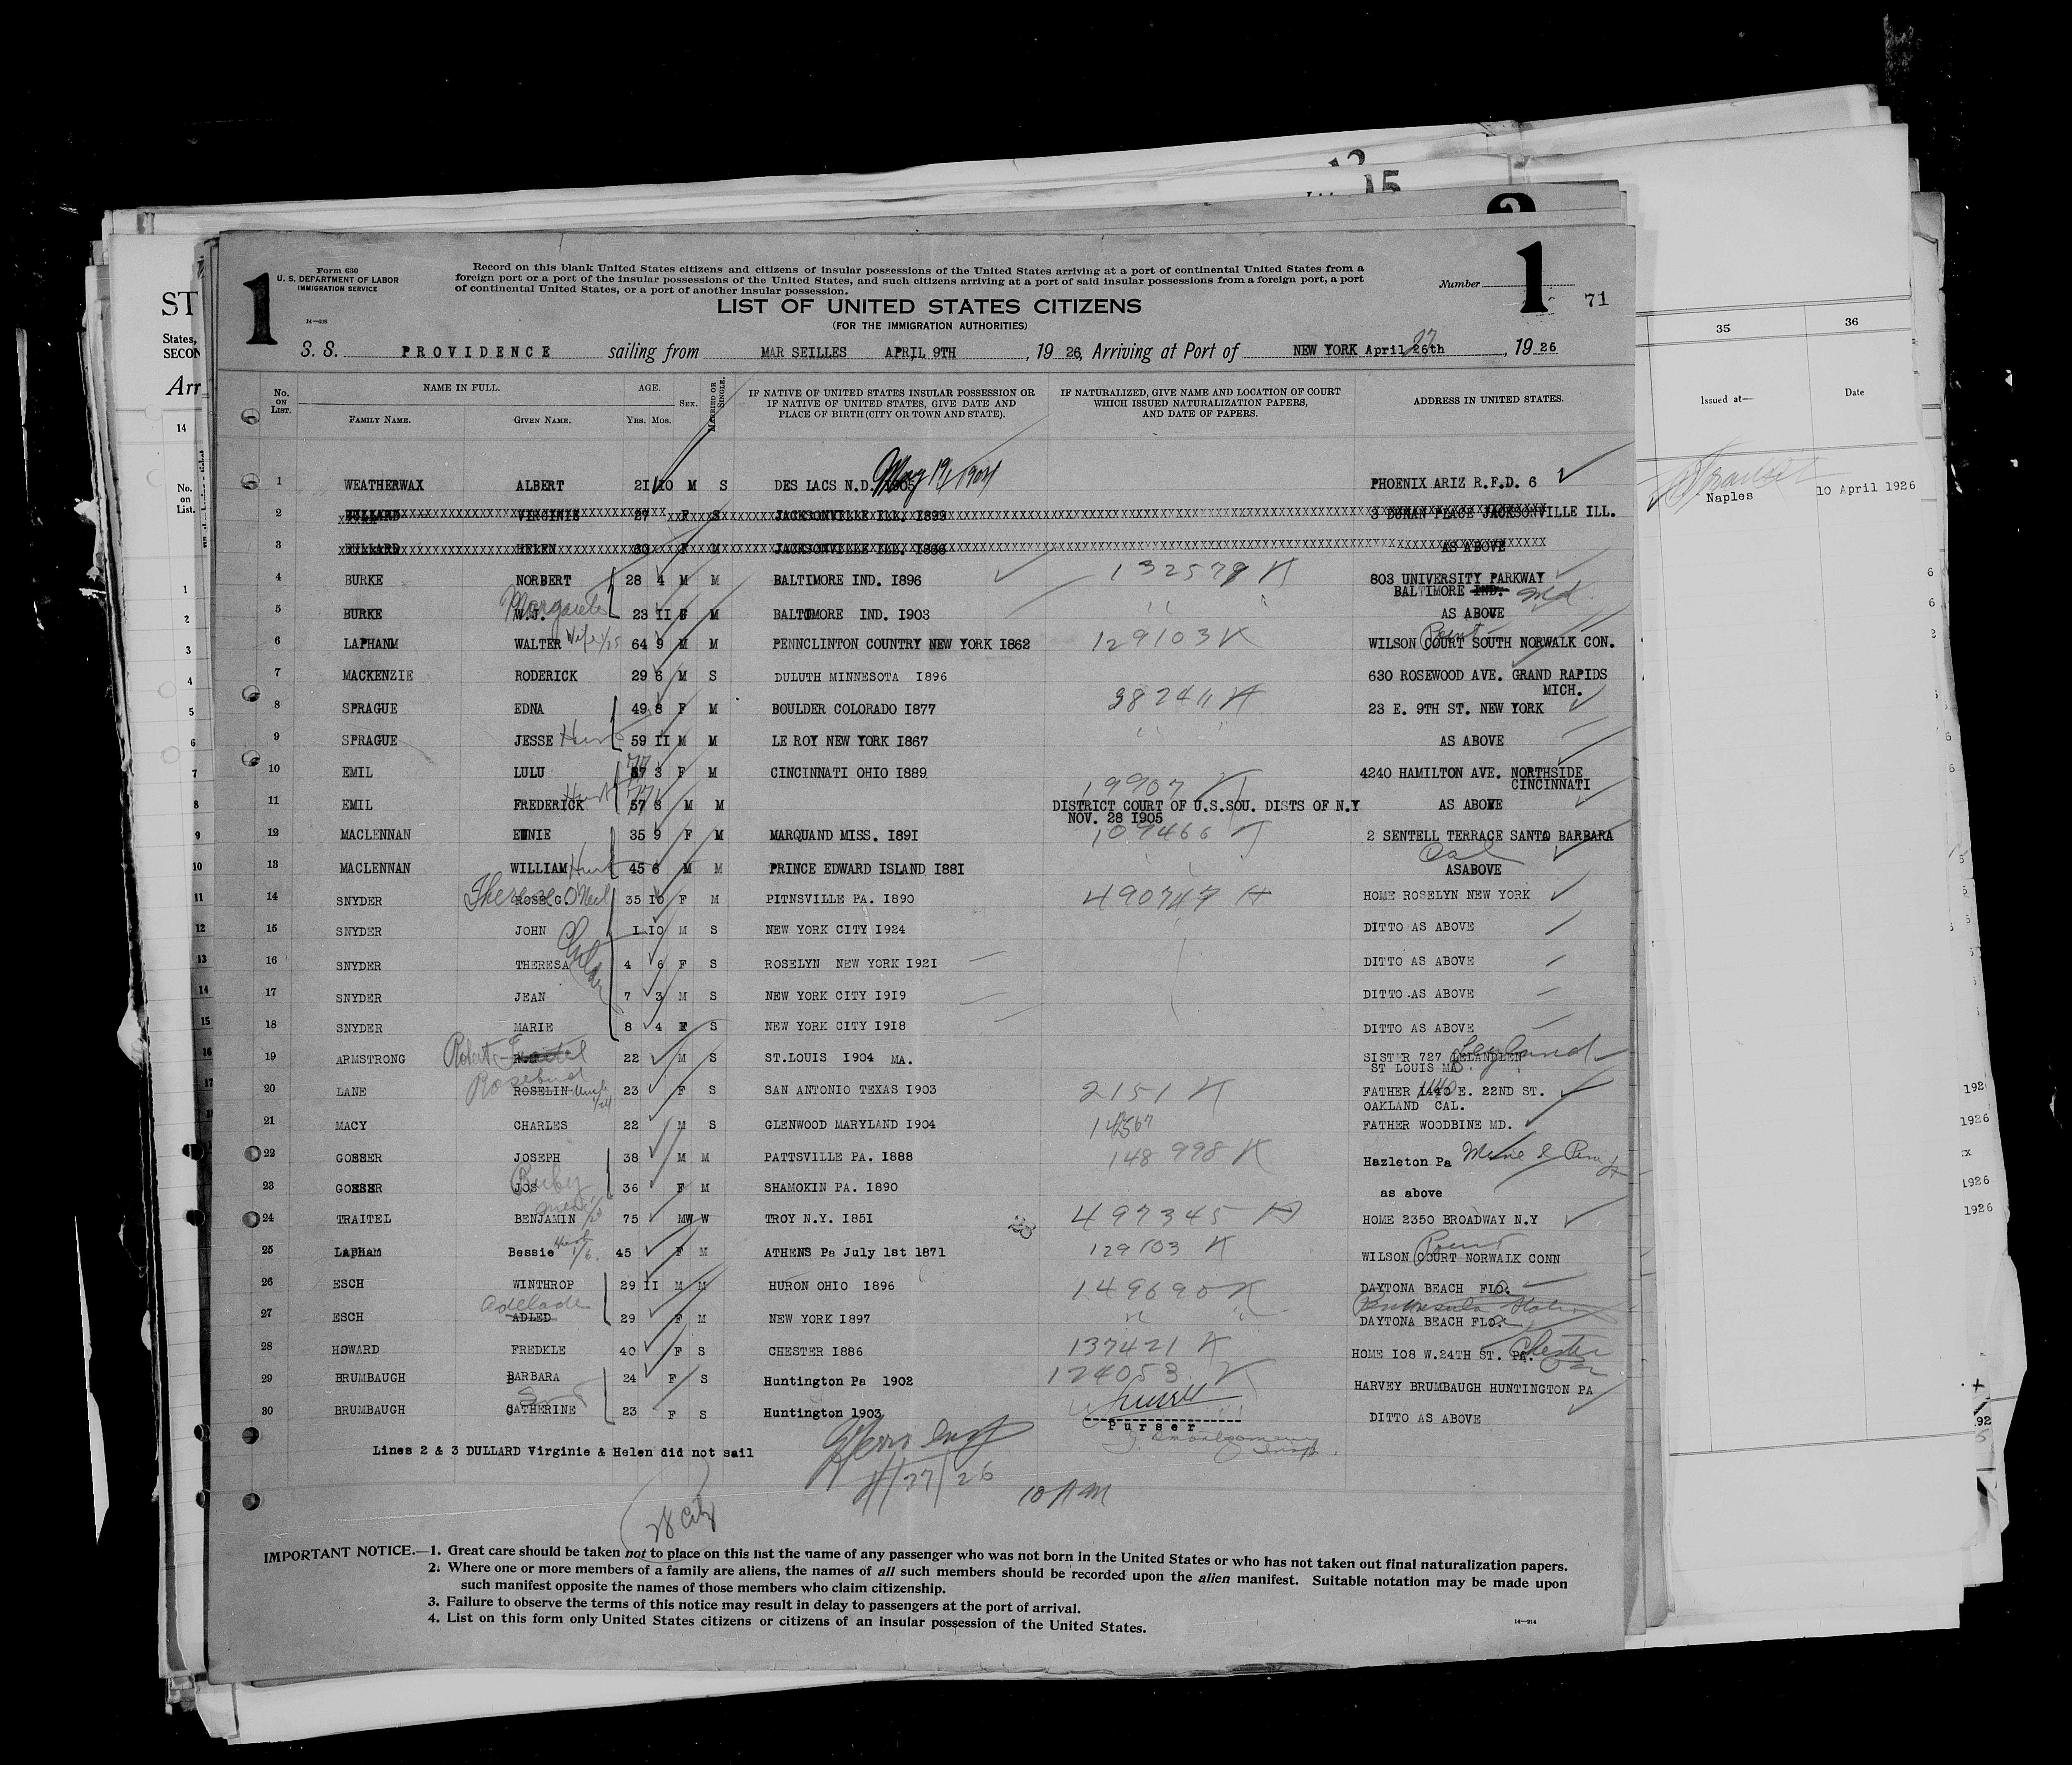 15
2
1
Form 630
U. S. DEPARTMENT OF LABOR
IMMIGRATION SERVICE
14—608
Record on this blank United States citizens and citizens of insular possessions of the United States arriving at a port of continental United States from a
foreign port or a port of the insular possessions of the United States, and such citizens arriving at a port of said insular possessions from a foreign port, a port
of continental United States, or a port of another insular possession.
Number
1
71
LIST OF UNITED STATES CITIZENS
(FOR THE IMMIGRATION AUTHORITIES)
S. S. PROVIDENCE sailing from MAR SEILLES APRIL 9TH , 19 26, Arriving at Port of NEW YORK April 26th 27 , 19 26
No. ON LIST.
NAME IN FULL.
FAMILY NAME. GIVEN NAME.
AGE.
YRS. MOS.
SEX.
MARRIED OR SINGLE.
IF NATIVE OF UNITED STATES INSULAR POSSESSION OR
IF NATIVE OF UNITED STATES, GIVE DATE AND
PLACE OF BIRTH (CITY OR TOWN AND STATE).
IF NATURALIZED, GIVE NAME AND LOCATION OF COURT
WHICH ISSUED NATURALIZATION PAPERS,
AND DATE OF PAPERS.
ADDRESS IN UNITED STATES.
1 WEATHERWAX ALBERT 21 10 M S DES LACS N.D. 1905 May 19, 1904 PHOENIX ARIZ R.F.D. 6
2 DULLARD VIRGINIE 27 F S JACKSONVILLE ILL. 1899 3 DUNAN PLACE JACKSONVILLE ILL.
3 DULLARD HELEN 60 F M JACKSONVILLE ILL. 1866 AS ABOVE
4 BURKE NORBERT 28 4 M M BALTIMORE IND. 1896 132579 803 UNIVERSITY PARKWAY
BALTIMORE IND. Md.
5 BURKE W.J. Margarete 23 11 F M BALTIMORE IND. 1903 " " AS ABOVE
6 LAPHAM WALTER Wife 1/25 64 9 M M PENNCLINTON COUNTRY NEW YORK 1862 129103 WILSON COURT Point SOUTH NORWALK CON.
7 MACKENZIE RODERICK 29 6 M S DULUTH MINNESOTA 1896 630 ROSEWOOD AVE. GRAND RAPIDS
MICH.
8 SPRAGUE EDNA 49 8 F M BOULDER COLORADO 1877 23 E. 9TH ST. NEW YORK
9 SPRAGUE JESSE 59 11 M M LE ROY NEW YORK 1867 " AS ABOVE
10 EMIL LULU 3 F M CINCINNATI OHIO 1889 19907 4240 HAMILTON AVE. NORTHSIDE
CINCINNATI
11 EMIL FREDERICK 57 8 M M DISTRICT COURT OF U.S.SOU. DISTS OF N.Y AS ABOVE
NOV. 28 1905
12 MACLENNAN EUNIE 35 9 F M MARQUAND MISS. 1891 109466 2 SENTELL TERRACE SANTA BARBARA
Cal
13 MACLENNAN WILLIAM 45 6 M M PRINCE EDWARD ISLAND 1881 ASABOVE
14 SNYDER ROSE G. Therese O'Neil 35 10 F M PITNSVILLE PA. 1890 490747 HOME ROSELYN NEW YORK
15 SNYDER JOHN 1 10 M S NEW YORK CITY 1924 DITTO AS ABOVE
16 SNYDER THERESA 4 6 F S ROSELYN NEW YORK 1921 DITTO AS ABOVE
17 SNYDER JEAN 7 3 M S NEW YORK CITY 1919 DITTO.AS ABOVE
18 SNYDER MARIE 8 4 F S NEW YORK CITY 1918 DITTO AS ABOVE
19 ARMSTRONG Robert 22 M S ST.LOUIS 1904 MA. SISTER 727 LELANDLEN Leyland
ST LOUIS MA
20 LANE ROSELIN Rosebud 23 F S SAN ANTONIO TEXAS 1903 2151 FATHER 1440 E. 22ND ST.
OAKLAND CAL.
21 MACY CHARLES 22 M S GLENWOOD MARYLAND 1904 FATHER WOODBINE MD.
22 GOSSER JOSEPH 38 M M PATTSVILLE PA. 1888 148998 Hazleton Pa
23 GOSSER JOS Ruby 36 F M SHAMOKIN PA. 1890 as above
24 TRAITEL BENJAMIN 75 MW W TROY N.Y. 1851 497345 HOME 2350 BROADWAY N.Y
25 LAPHAM Bessie 1/6. 45 F M ATHENS Pa July 1st 1871 129103 WILSON COURT Point NORWALK CONN
26 ESCH WINTHROP 29 11 M M HURON OHIO 1896 149690 DAYTONA BEACH FLO.
Peninsula Station
27 ESCH ADLED Adelade 29 F M NEW YORK 1897 " " DAYTONA BEACH FLO.
28 HOWARD FREDKLE 40 F S CHESTER 1886 137421 HOME 108 W.24TH ST. PA. Chester Pa
29 BRUMBAUGH BARBARA 24 F S Huntington Pa 1902 124053 HARVEY BRUMBAUGH HUNTINGTON PA
30 BRUMBAUGH CATHERINE 23 F S Huntington 1903 DITTO AS ABOVE
Purser
Lines 2 & 3 DULLARD Virginie & Helen did not sail
4/27/26 10 AM
28 City
IMPORTANT NOTICE.—1. Great care should be taken not to place on this list the name of any passenger who was not born in the United States or who has not taken out final naturalization papers.
2. Where one or more members of a family are aliens, the names of all such members should be recorded upon the alien manifest. Suitable notation may be made upon
such manifest opposite the names of those members who claim citizenship.
3. Failure to observe the terms of this notice may result in delay to passengers at the port of arrival.
4. List on this form only United States citizens or citizens of an insular possession of the United States.
14—914
ST
States,
SECON
Arr
14
No. on List.
1
2
3
4
5
6
7
8
9
10
11
12
13
14
15
16
17
35 36
Issued at— Date
Transit
Naples 10 April 1926
192
1926
1926
1926